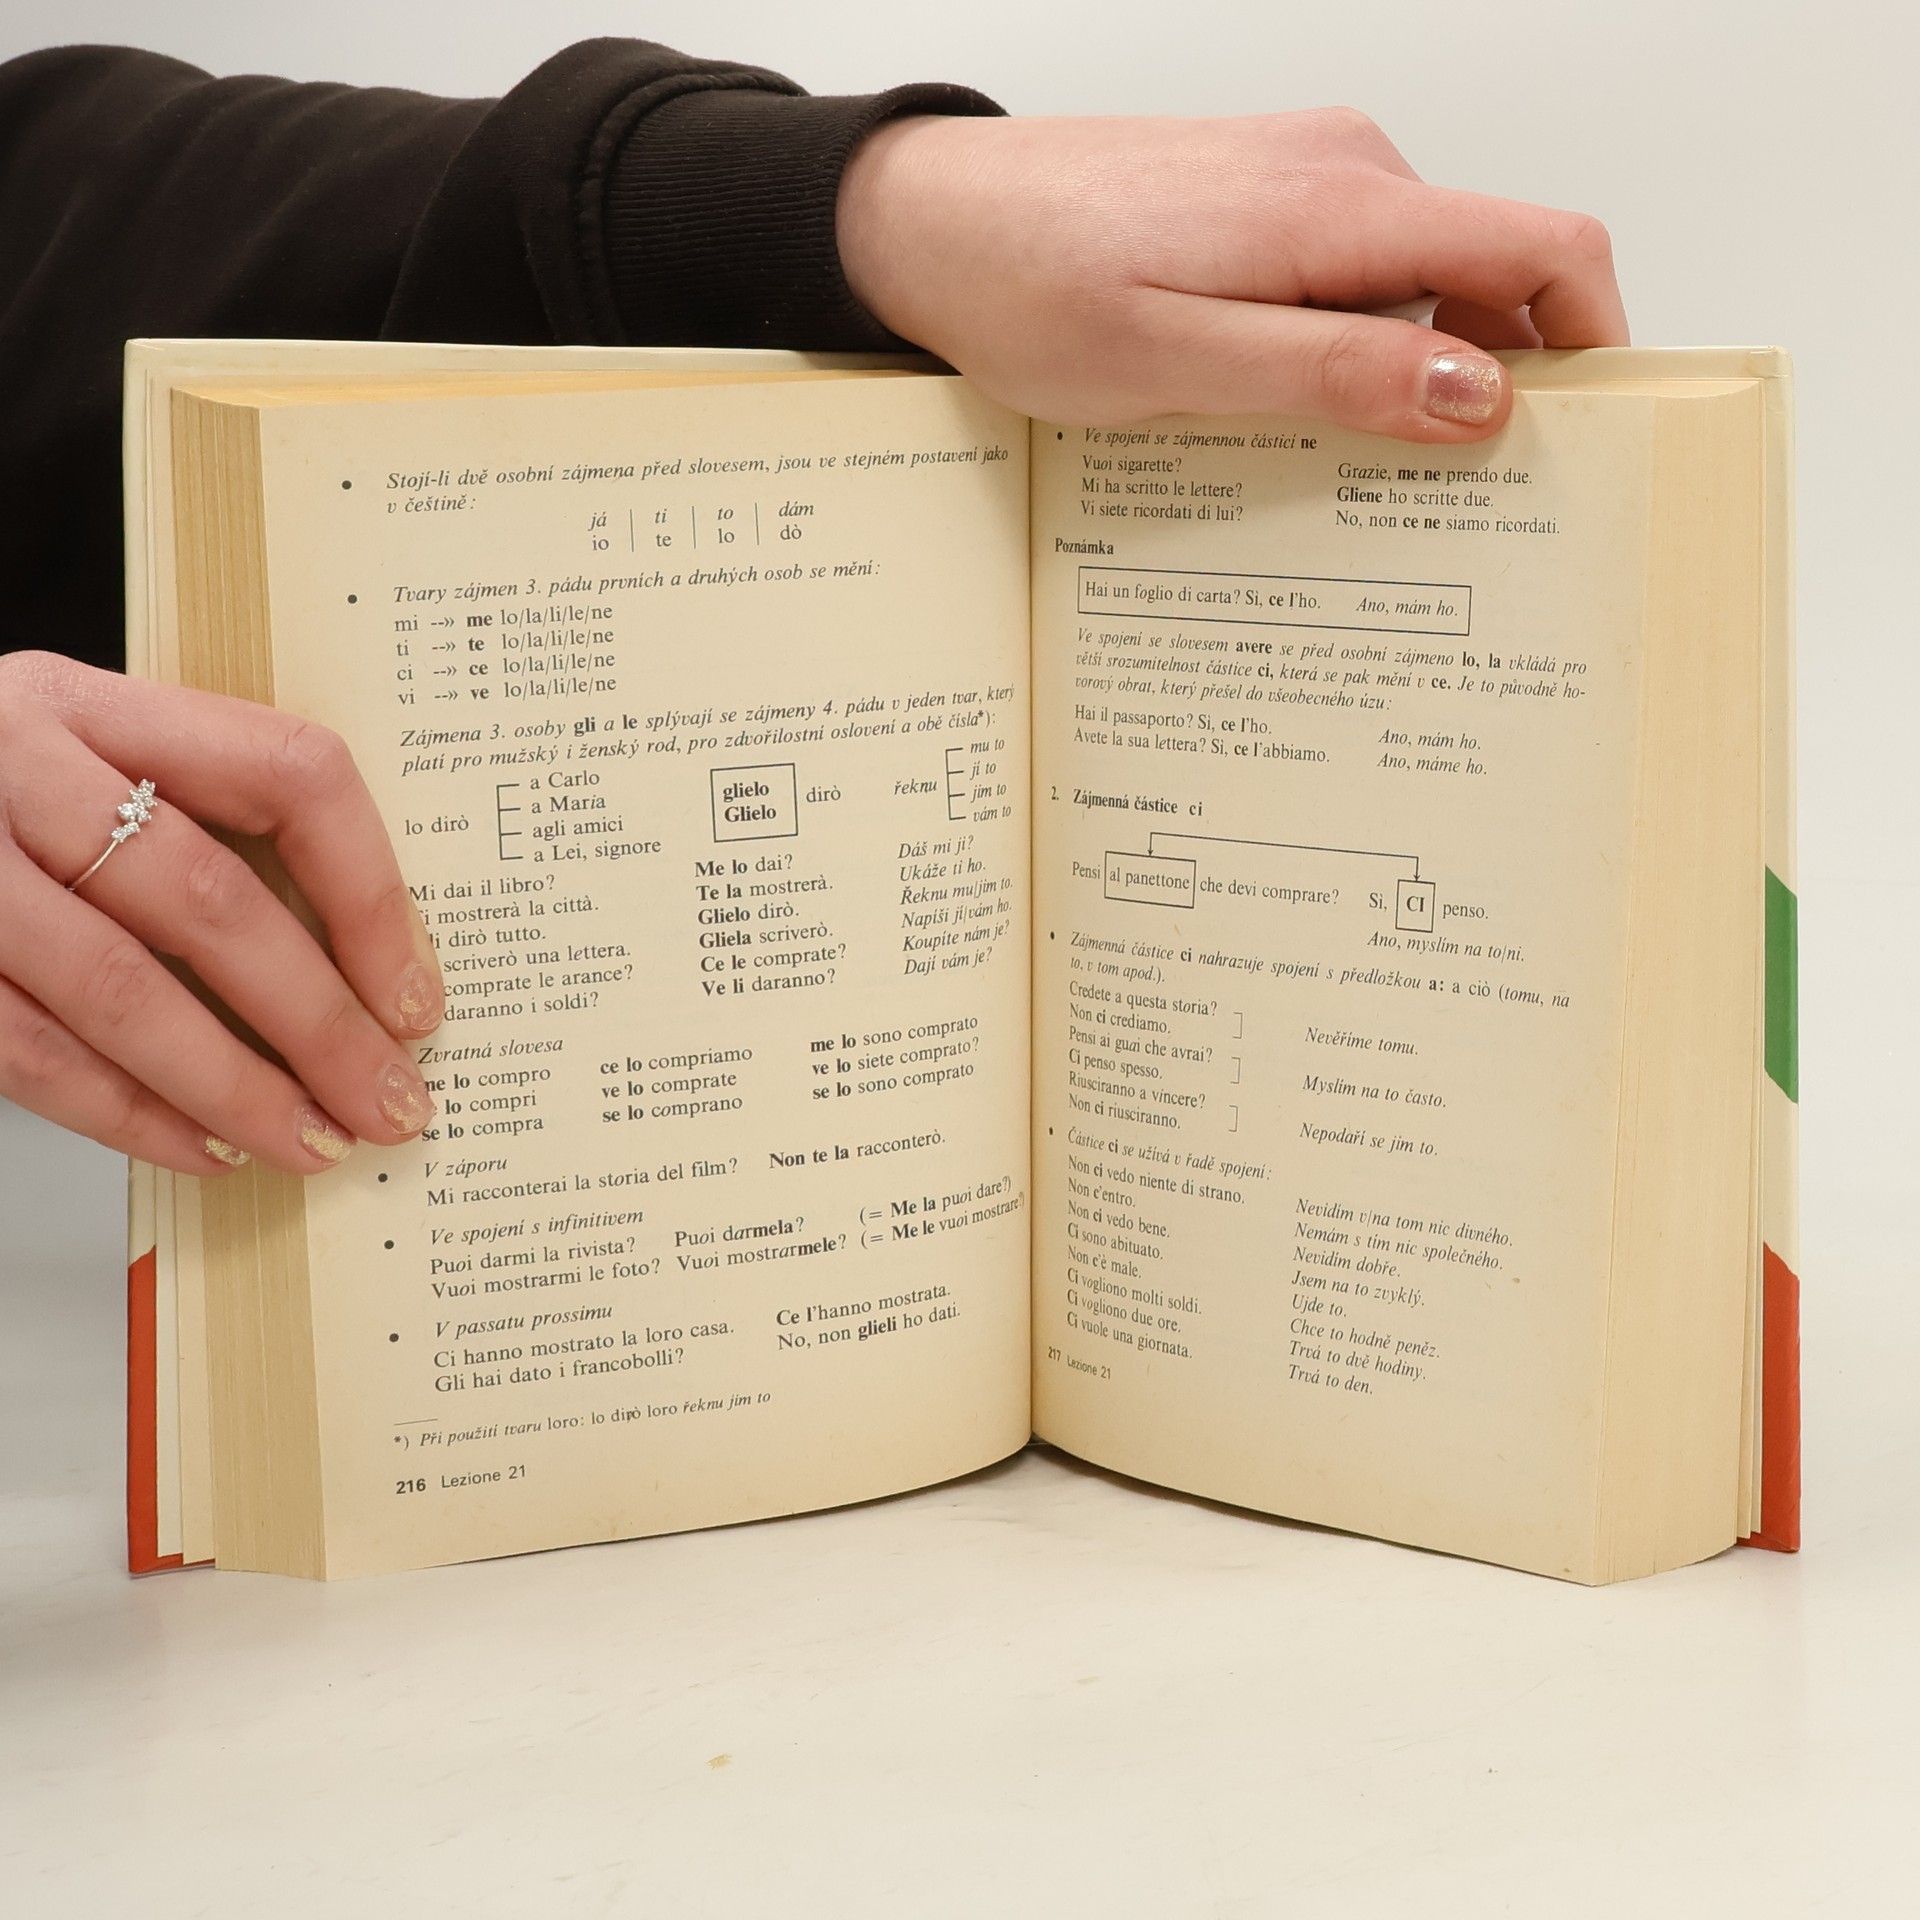 • Stojí-li dvě osobní zájmena před slovesem, jsou ve stejném postavení jako
v češtině:
já | ti | to | dám
io | te | lo | dò
• Tvary zájmen 3. pádu prvních a druhých osob se mění:
mi --» me lo/la/li/le/ne
ti --» te lo/la/li/le/ne
ci --» ce lo/la/li/le/ne
vi --» ve lo/la/li/le/ne
Zájmena 3. osoby gli a le splývají se zájmeny 4. pádu v jeden tvar, který
platí pro mužský i ženský rod, pro zdvořilostní oslovení a obě čísla*):
lo dirò
a Carlo
a Maria
agli amici
a Lei, signore
glielo
Glielo
dirò
řeknu
mu to
jí to
jim to
vám to
Mi dai il libro? Me lo dai? Dáš mi ji?
mostrerà la città. Te la mostrerà. Ukáže ti ho.
dirò tutto. Glielo dirò. Řeknu mu/jim to.
scriverò una lettera. Gliela scriverò. Napíši jí/vám ho.
comprate le arance? Ce le comprate? Koupíte nám je?
daranno i soldi? Ve li daranno? Dají vám je?
Zvratná slovesa
me lo compro ce lo compriamo me lo sono comprato
lo compri ve lo comprate ve lo siete comprato?
se lo compra se lo comprano se lo sono comprato
• V záporu
Mi racconterai la storia del film? Non te la racconterò.
• Ve spojení s infinitivem
Puoi darmi la rivista? Puoi darmela? (= Me la puoi dare?)
Vuoi mostrarmi le foto? Vuoi mostrarmele? (= Me le vuoi mostrare?)
• V passatu prossimu
Ci hanno mostrato la loro casa. Ce l'hanno mostrata.
Gli hai dato i francobolli? No, non glieli ho dati.
*) Při použití tvaru loro: lo dirò loro řeknu jim to
216 Lezione 21
• Ve spojení se zájmennou částicí ne
Vuoi sigarette? Grazie, me ne prendo due.
Mi ha scritto le lettere? Gliene ho scritte due.
Vi siete ricordati di lui? No, non ce ne siamo ricordati.
Poznámka
Hai un foglio di carta? Sì, ce l'ho. Ano, mám ho.
Ve spojení se slovesem avere se před osobní zájmeno lo, la vkládá pro
větší srozumitelnost částice ci, která se pak mění v ce. Je to původně ho-
vorový obrat, který přešel do všeobecného úzu:
Hai il passaporto? Sì, ce l'ho. Ano, mám ho.
Avete la sua lettera? Sì, ce l'abbiamo. Ano, máme ho.
2. Zájmenná částice ci
Pensi al panettone che devi comprare? Sì, CI penso.
Ano, myslím na to/ni.
• Zájmenná částice ci nahrazuje spojení s předložkou a: a ciò (tomu, na
to, v tom apod.).
Credete a questa storia?
Non ci crediamo. Nevěříme tomu.
Pensi ai guai che avrai?
Ci penso spesso. Myslím na to často.
Riusciranno a vincere?
Non ci riusciranno. Nepodaří se jim to.
• Částice ci se užívá v řadě spojení:
Non ci vedo niente di strano. Nevidím v/na tom nic divného.
Non c'entro. Nemám s tím nic společného.
Non ci vedo bene. Nevidím dobře.
Ci sono abituato. Jsem na to zvyklý.
Non c'è male. Ujde to.
Ci vogliono molti soldi. Chce to hodně peněz.
Ci vogliono due ore. Trvá to dvě hodiny.
Ci vuole una giornata. Trvá to den.
217 Lezione 21